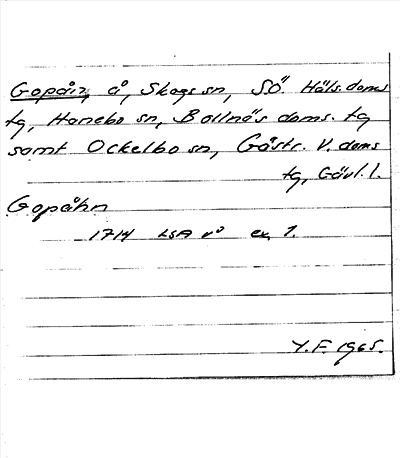 Gopån, å, Skogs sn, S.Ö. Häls. doms
tg, Hanebo sn, Bollnäs doms. tg
samt Ockelbo sn, Gästr. V. doms
tg, Gävl. l.
Gopåhn
1714 LSA v° ex. 1.
Y.F. 1965.